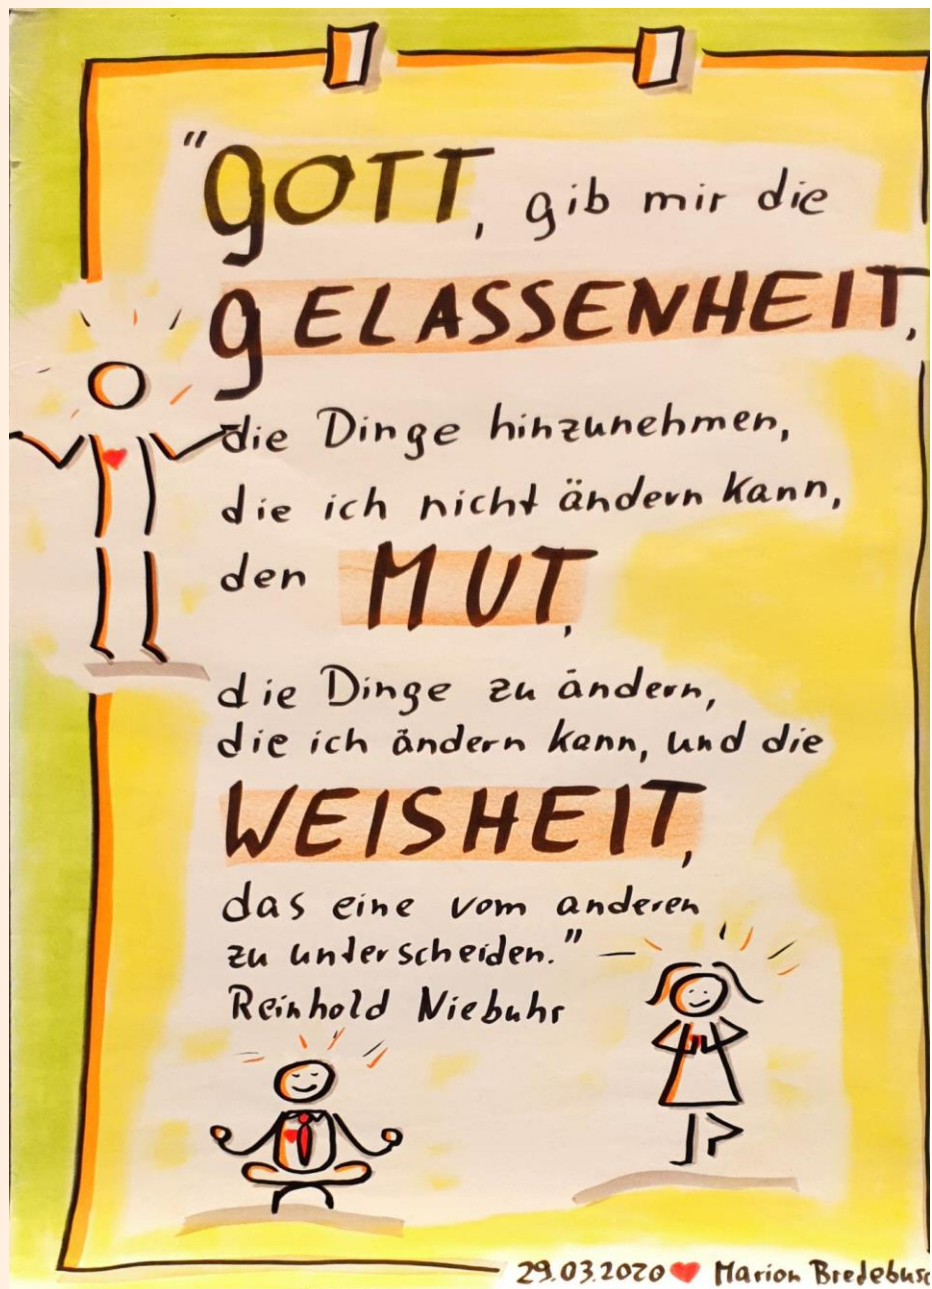 "GOTT, gib mir die
GELASSENHEIT,
die Dinge hinzunehmen,
die ich nicht ändern kann,
den MUT,
die Dinge zu ändern,
die ich ändern kann, und die
WEISHEIT,
das eine vom anderen
zu unterscheiden."
Reinhold Niebuhr
29.03.2020 Marion Bredebusc